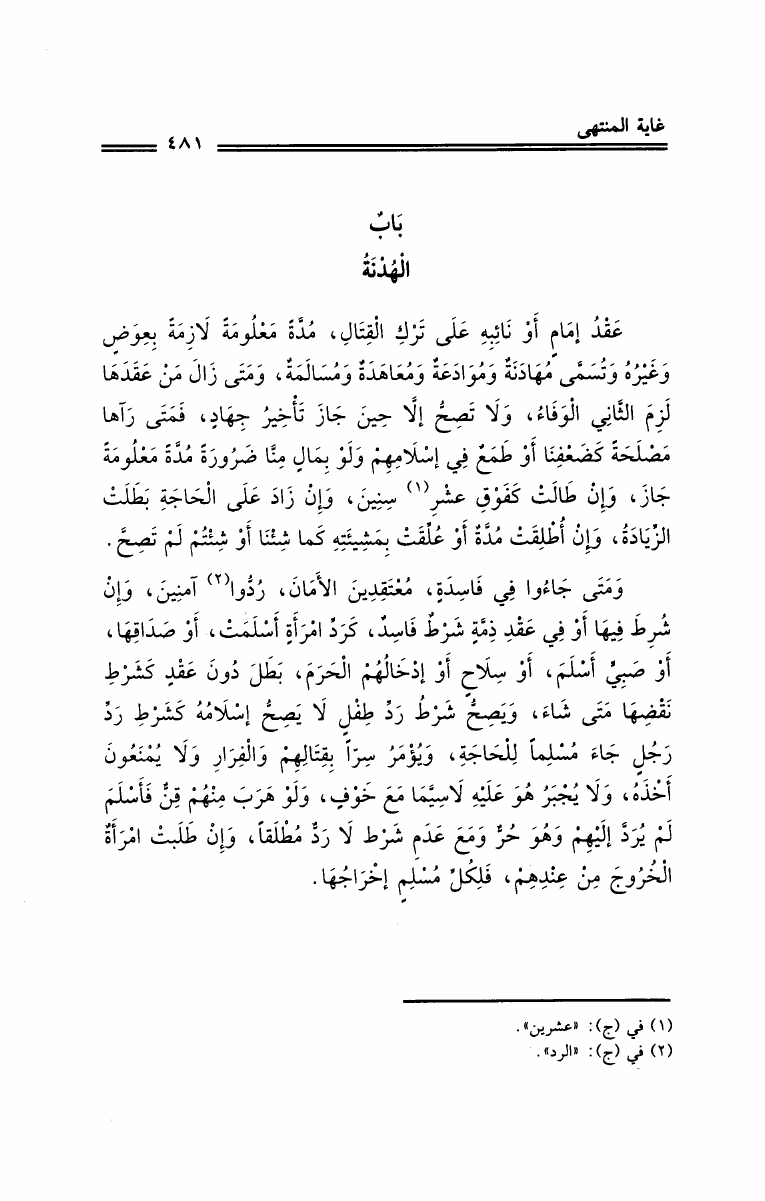 غاية المنتهى
٤٨١
بَابٌ
الْهُدْنَةُ
عَقْدُ إمَامٍ أَوْ نَائِبِهِ عَلَى تَرْكِ الْقِتَالِ، مُدَّةً مَعْلُومَةً لَازِمَةً بِعِوَضٍ
وَغَيْرُهُ وَتُسَمَّى مُهَادَنَةٌ وَمُوَادَعَةٌ وَمُعَاهَدَةٌ وَمُسَالَمَةٌ، وَمَتَى زَالَ مَنْ عَقَدَهَا
لَزِمَ الثَّانِي الْوَفَاءُ، وَلَا تَصِحُّ إلَّا حِينَ جَازَ تَأْخِيرُ جِهَادٍ، فَمَتَى رَآها
مَصْلَحَةً كَضَعْفِنَا أَوْ طَمَعٌ فِي إسْلَامِهِمْ وَلَوْ بِمَالٍ مِنَّا ضَرُورَةً مُدَّةً مَعْلُومَةً
جَازَ، وَإِنْ طَالَتْ كَفَوْقِ عشْرِ(١) سِنِينَ، وَإِنْ زَادَ عَلَى الْحَاجَةِ بَطَلَتْ
الزِّيَادَةُ، وَإِنْ أُطْلِقَتْ مُدَّةٌ أَوْ عُلِّقَتْ بِمَشِيئَتِهِ كَما شِئْنَا أَوْ شِئْتُمْ لَمْ تَصِحَّ.
وَمَتَى جَاءُوا فِي فَاسِدَةٍ، مُعْتَقِدِينَ الأَمَانَ، رُدُّوا(٢) آمنِينَ، وَإِنْ
شُرِطَ فِيهَا أَوْ فِي عَقْدِ ذِمَّةٍ شَرْطٌ فَاسِدٌ، كَرَدِّ امْرَأَةٍ أَسْلَمَتْ، أَوْ صَدَاقِهَا،
أَوْ صَبِيٍّ أَسْلَمَ، أَوْ سِلَاحٍ أَوْ إدْخَالُهُمْ الْحَرَمَ، بَطَلَ دُونَ عَقْدٍ كَشَرْطِ
نَقْضِهَا مَتَى شَاءَ، وَيَصِحُّ شَرْطُ رَدِّ طِفْلٍ لَا يَصِحُّ إسْلَامُهُ كَشَرْطِ رَدِّ
رَجُلٍ جَاءَ مُسْلِماً لِلْحَاجَةِ، وَيُؤْمَرُ سِرّاً بِقِتَالِهِمْ وَالْفِرَارِ وَلَا يُمْنَعُونَ
أَخْذَهُ، وَلَا يُجْبَرُ هُوَ عَلَيْهِ لَاسِيَّمَا مَعَ خَوْفٍ، وَلَوْ هَرَبَ مِنْهُمْ قِنٌّ فَأَسْلَمَ
لَمْ يُرَدَّ إلَيْهِمْ وَهُوَ حُرٌّ وَمَعَ عَدَمِ شَرْط لَا رَدٌّ مُطْلَقاً، وَإِنْ طَلَبتْ امْرَأَةٌ
الْخُرُوجَ مِنْ عِنْدِهِمْ، فَلِكُلِّ مُسْلِمٍ إخْرَاجُهَا.
(١) في (ج): «عشرين».
(٢) في (ج): «الرد».